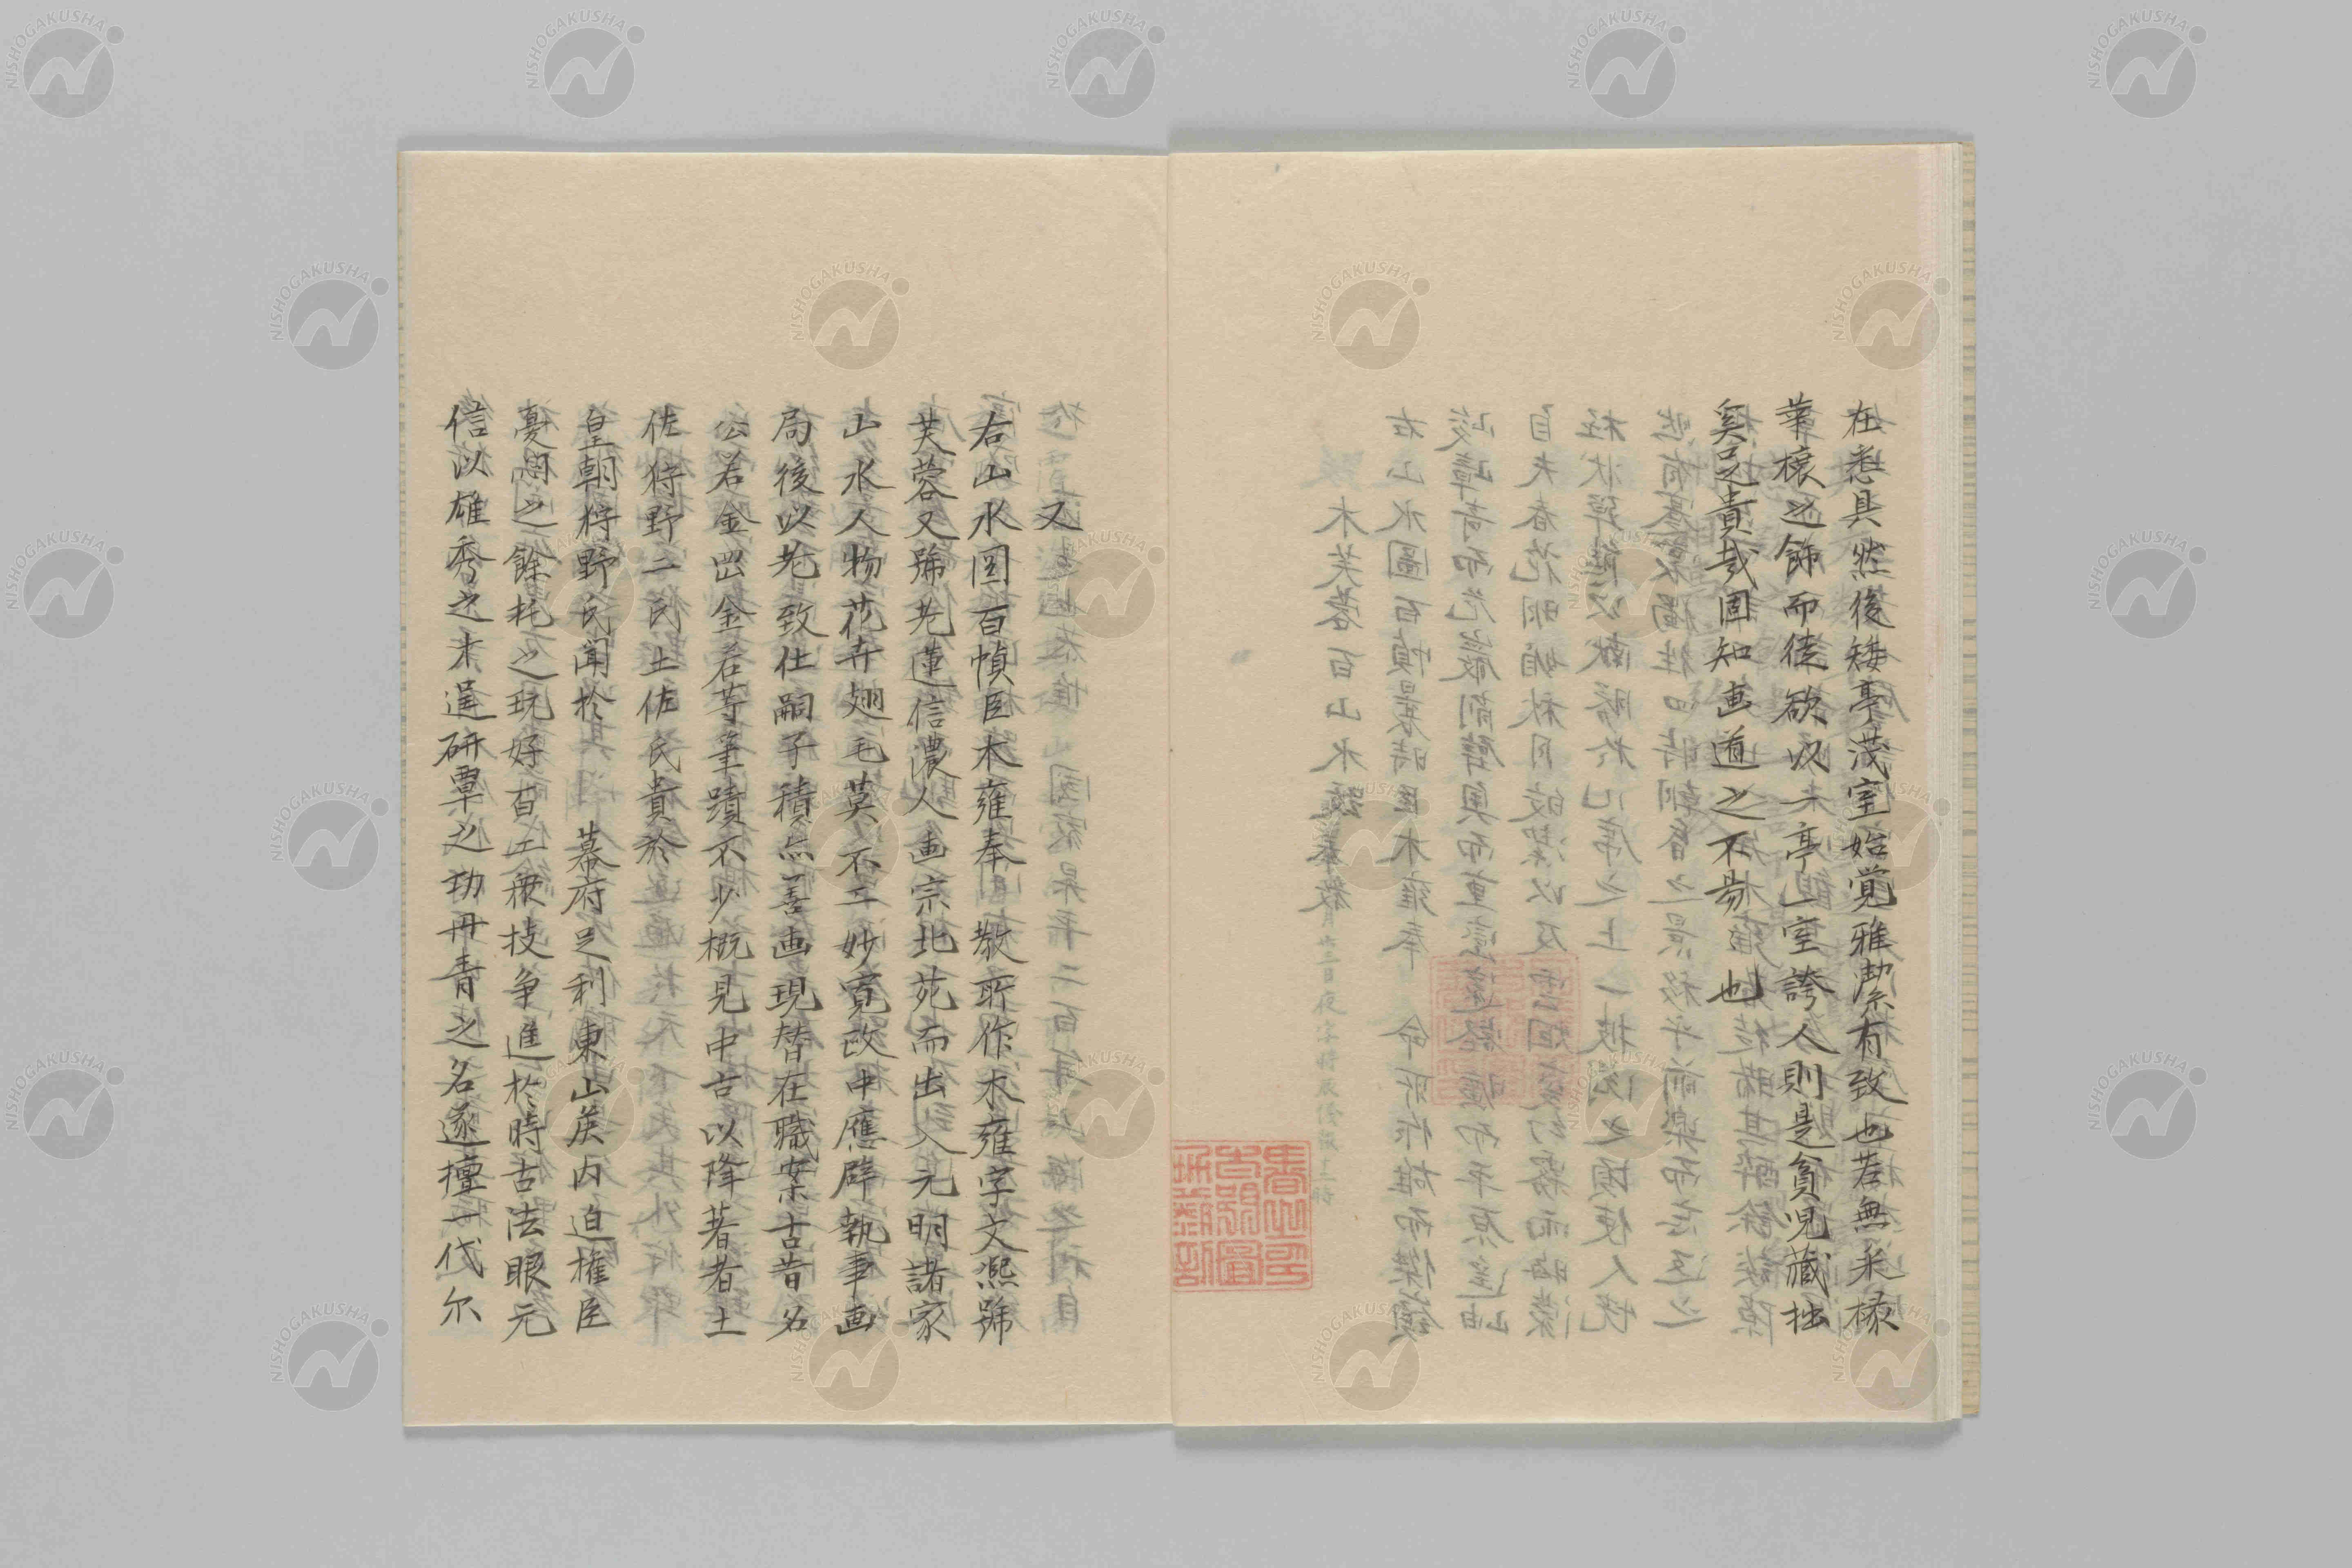 在悉具然後矮亭浅室始覚雅潔有致也若無采椽
華榱之飾而徒欲以一亭一室誇人則是貧児蔵拙
奚足貴哉固知画道之不易也
又
右山水図百幀臣木雍奉　教所作木雍字文熙號
芙蓉又號老蓮信濃人画宗北苑而出入元明諸家
山水人物花卉翅毛莫不工妙寛政中應辟執事画
局後以老致仕嗣子積亦善画現替在職案古昔名
公若金岡金若等筆蹟不少概見中古以降著者土
佐狩野二氏土佐氏貴於
皇朝狩野氏聞於　幕府足利東山矦内迫權臣
憂悶之餘託之玩好百工衆技争進於時古法眼元
信以雄秀之才逞研覃之功丹青之名遂擅一代尔
NISHOGAKUSHA